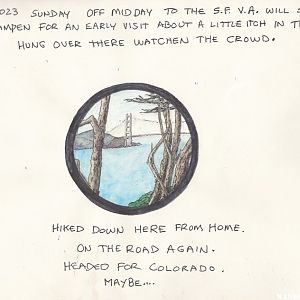 2023 SUNDAY OFF MIDDAY TO THE S.F. V.A. WILL S
AMPEN FOR AN EARLY VISIT ABOUT A LITTLE ITCH IN TH
HUNG OVER THERE WATCHEN THE CROWD.
HIKED DOWN HERE FROM HOME.
ON THE ROAD AGAIN.
HEADED FOR COLORADO.
MAYBE....